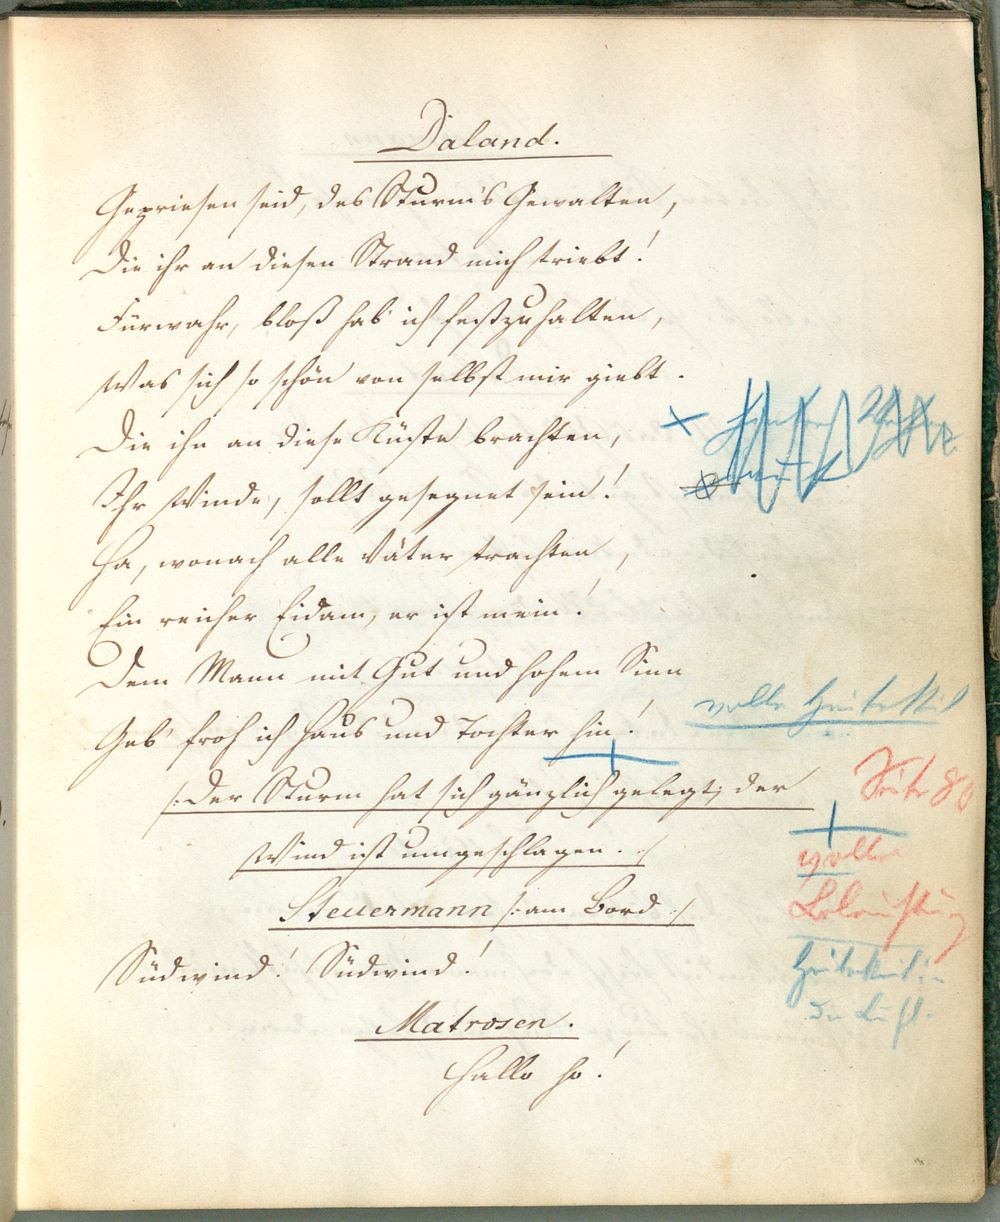 Daland.
Gepriesen seid, des Sturm's Gewalten,
Die ihr an diesen Strand mich triebt!
Fürwahr, bloß hab' ich festzuhalten,
Was sich so schön von selbst mir giebt.
Die ihn an diese Küste brachten,
Ihr Winde, sollt gesegnet sein!
Ha, wonach alle Väter trachten,
Ein reicher Eidam, er ist mein!
Dem Mann mit Gut und hohem Sinn
Geb' froh ich Haus und Tochter hin!
volle Heiterkeit
/: Der Sturm hat sich gänzlich gelegt; der
Seite 80
Wind ist umgeschlagen. :/
volle
Beleuchtung
Steuermann /: am Bord :/
Südwind! Südwind!
Heiterkeit in
der Luft.
Matrosen.
Hallo ho!